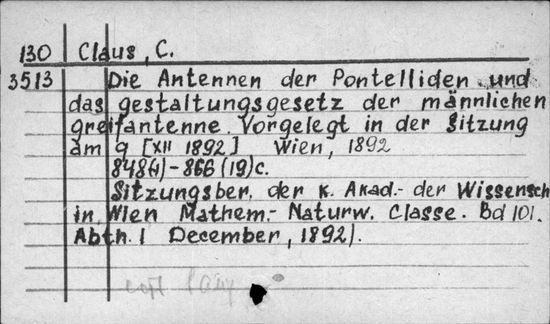 130 Claus, C.
3513 Die Antennen der Pontelliden und
das gestaltungsgesetz der männlichen
greifantenne. Vorgelegt in der Sitzung
am 9 [XII 1892] Wien, 1892
848(1)-866(19)c.
Sitzungsber. der K. Akad. der Wissensch
in Wien Mathem.- Naturw. Classe. Bd 101.
Abth. I December, 1892).